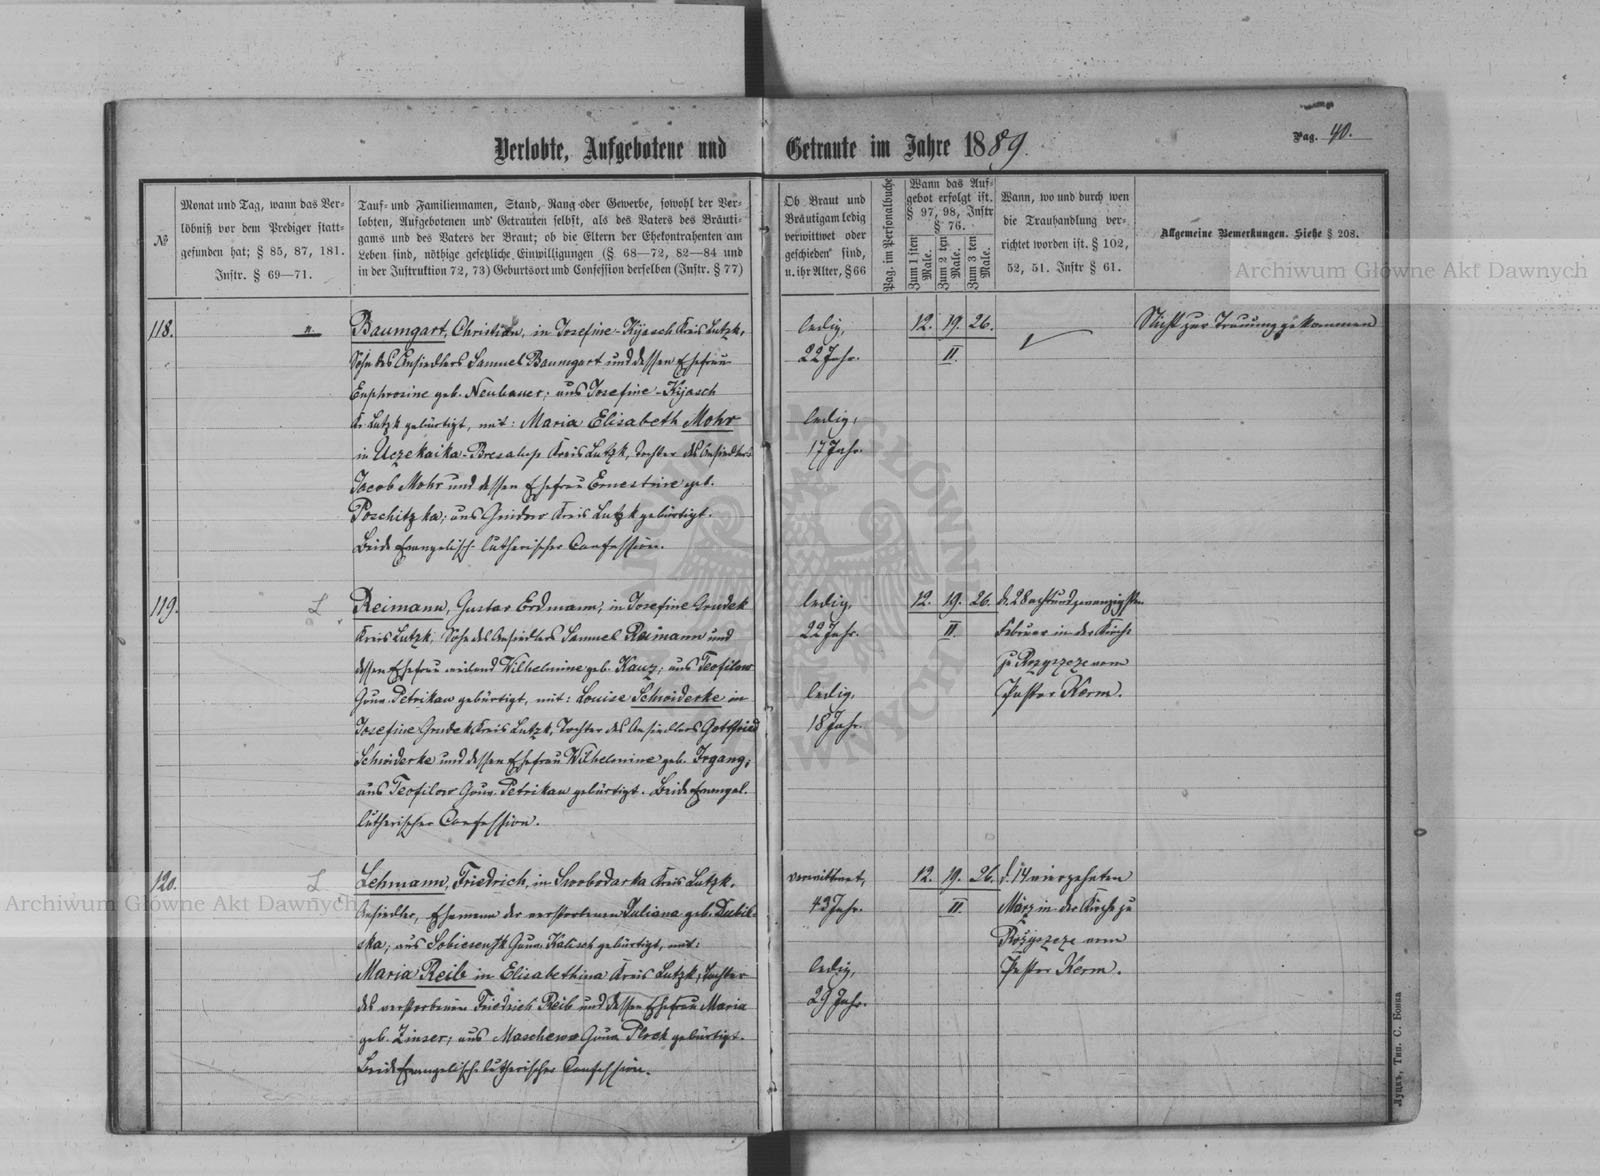 Verlobte, Aufgebotene und Getraute im Jahre 1889.
Pag. 40.
№
Monat und Tag, wann das Ver-
löbniß vor dem Prediger statt-
gefunden hat; § 85, 87, 181.
Instr. § 69—71.
Tauf- und Familiennamen, Stand, Rang oder Gewerbe, sowohl der Ver-
lobten, Aufgebotenen und Getrauten selbst, als des Vaters des Bräuti-
gams und des Vaters der Braut; ob die Eltern der Ehekontrahenten am
Leben sind, nöthige gesetzliche Einwilligungen (§ 68—72, 82—84 und
in der Instruktion 72, 73) Geburtsort und Confession derselben (Instr. § 77)
Ob Braut und
Bräutigam ledig
verwittwet oder
geschieden sind,
u. ihr Alter, § 66
Pag. im Personalbuche
Wann das Auf-
gebot erfolgt ist.
§ 97, 98, Instr
§ 76.
Zum 1 sten Male.
Zum 2 ten Male.
Zum 3 ten Male.
Wann, wo und durch wen
die Trauhandlung ver-
richtet worden ist. § 102,
52, 51. Instr § 61.
Allgemeine Bemerkungen. Siehe § 208.
118.
Baumgart, Christian, in Josefine-Kijasch Kreis Lutzk,
Sohn des Ansiedlers Samuel Baumgart und dessen Ehefrau
Euphrosine geb. Neubauer; aus Josefine-Kijasch
Kr. Lutzk gebürtigt, mit: Maria Elisabeth Mohr
in Kreis Lutzk, Tochter des Ansiedlers
Jacob Mohr und dessen Ehefrau Ernestine geb.
Poschitzka; aus Gnidow Kreis Lutzk gebürtigt.
Beide Evangelisch-lutherischer Confession.
ledig,
22 Jahr.
ledig,
17 Jahr.
12. 19. 26.
II.
Nicht zur Trauung gekommen
119.
L
Reimann, Gustav Erdmann, in Josefine Grudek
Kreis Lutzk, Sohn des Ansiedlers Samuel Reimann und
dessen Ehefrau weiland Wilhelmine geb. Kauz; aus Teofilow
Gouv. Petrikau gebürtigt, mit: Louise Schwiderke in
Josefine Grudek Kreis Lutzk, Tochter des Ansiedlers Gottfried
Schwiderke und dessen Ehefrau Wilhelmine geb. Irgang;
aus Teofilow Gouv. Petrikau gebürtigt. Beide Evangel.
lutherischer Confession.
ledig,
22 Jahr.
ledig,
18 Jahr.
12. 19. 26.
II.
d. 28 achtundzwanzigsten
Februar in der Kirche
zu Rozyszcze vom
Pastor Kerm.
120.
L
Lehmann, Friedrich, in Swobodarka Kreis Lutzk,
Ansiedler, Ehemann der verstorbenen Juliana geb. Dubil-
ska; aus Gouv. Kalisch gebürtigt, mit:
Maria Reib in Elisabethina Kreis Lutzk, Tochter
des verstorbenen Friedrich Reib und dessen Ehefrau Maria
geb. Zinser; aus Maschewo Gouv. Plock gebürtigt.
Beide Evangelisch-lutherischer Confession.
verwittwet,
43 Jahr.
ledig,
29 Jahr.
12. 19. 26.
II.
d. 14 vierzehnten
März in der Kirche zu
Rożyszcze vom
Pastor Kerm.
Луцкъ, Тип. С. Бонка
Archiwum Główne Akt Dawnych
Archiwum Główne Akt Dawnych